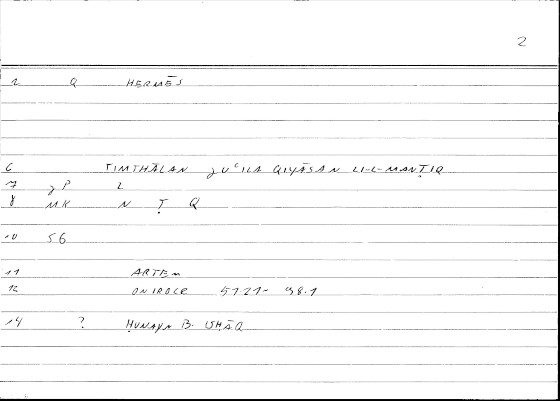 2
2 Q HERMĒS
6 TIMTHĀLAN ǧUʿILA QIYĀSAN LI-L-MANṬIQ
7 ǧP L
8 MK N Ṭ Q
10 56
11 ARTEM
12 ONIROCR 5121- 98.1
14 ? ḤUNAYN B. ISḤĀQ